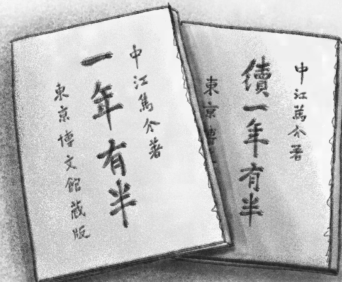 中江篤介著
一年有半
東京博文館藏版
中江篤介著
續一年有半
東京博